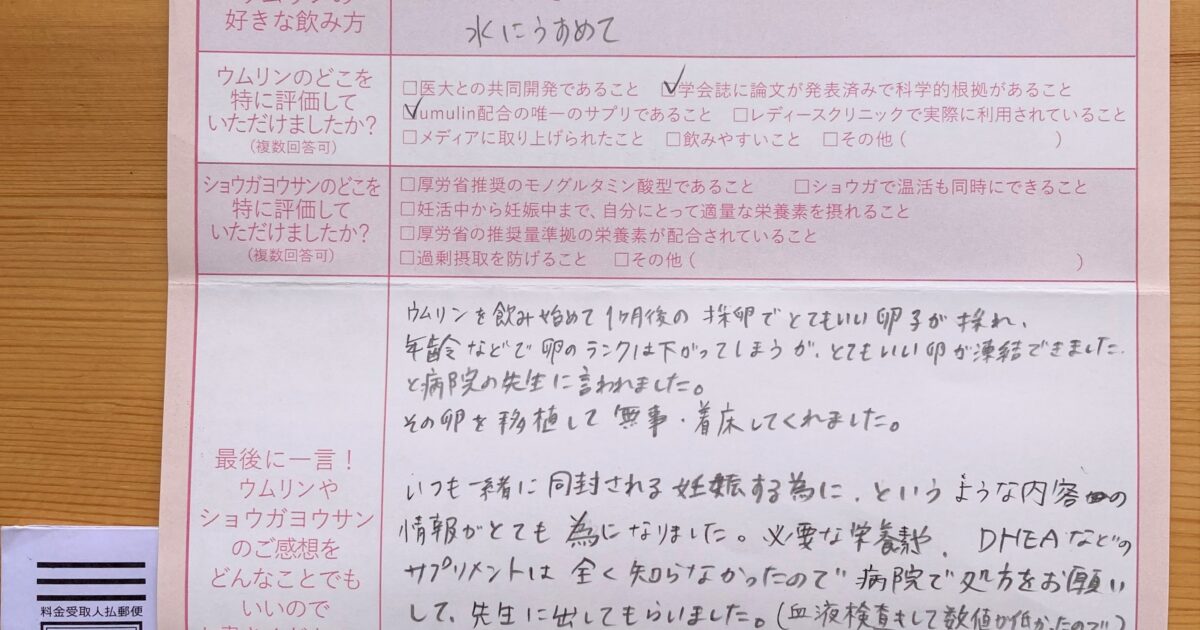 好きな飲み方
水にうすめて
ウムリンのどこを
特に評価して
いただけましたか?
(複数回答可)
□医大との共同開発であること ☑学会誌に論文が発表済みで科学的根拠があること
☑umulin配合の唯一のサプリであること □レディースクリニックで実際に利用されていること
□メディアに取り上げられたこと □飲みやすいこと □その他( )
ショウガヨウサンのどこを
特に評価して
いただけましたか?
(複数回答可)
□厚労省推奨のモノグルタミン酸型であること □ショウガで温活も同時にできること
□妊活中から妊娠中まで、自分にとって適量な栄養素を摂れること
□厚労省の推奨量準拠の栄養素が配合されていること
□過剰摂取を防げること □その他( )
最後に一言!
ウムリンや
ショウガヨウサン
のご感想を
どんなことでも
いいので
ウムリンを飲み始めて1ヶ月後の採卵でとてもいい卵子が採れ、
年齢などで卵のランクは下がってしまうが、とてもいい卵が凍結できました
と病院の先生に言われました。
その卵を移植して無事・着床してくれました。
いつも一緒に同封される妊娠する為に、というような内容の
情報がとても為になりました。必要な栄養素や、DHEAなどの
サプリメントは全く知らなかったので病院で処方をお願い
して、先生に出してもらいました。(血液検査もして数値が低かったので)
料金受取人払郵便